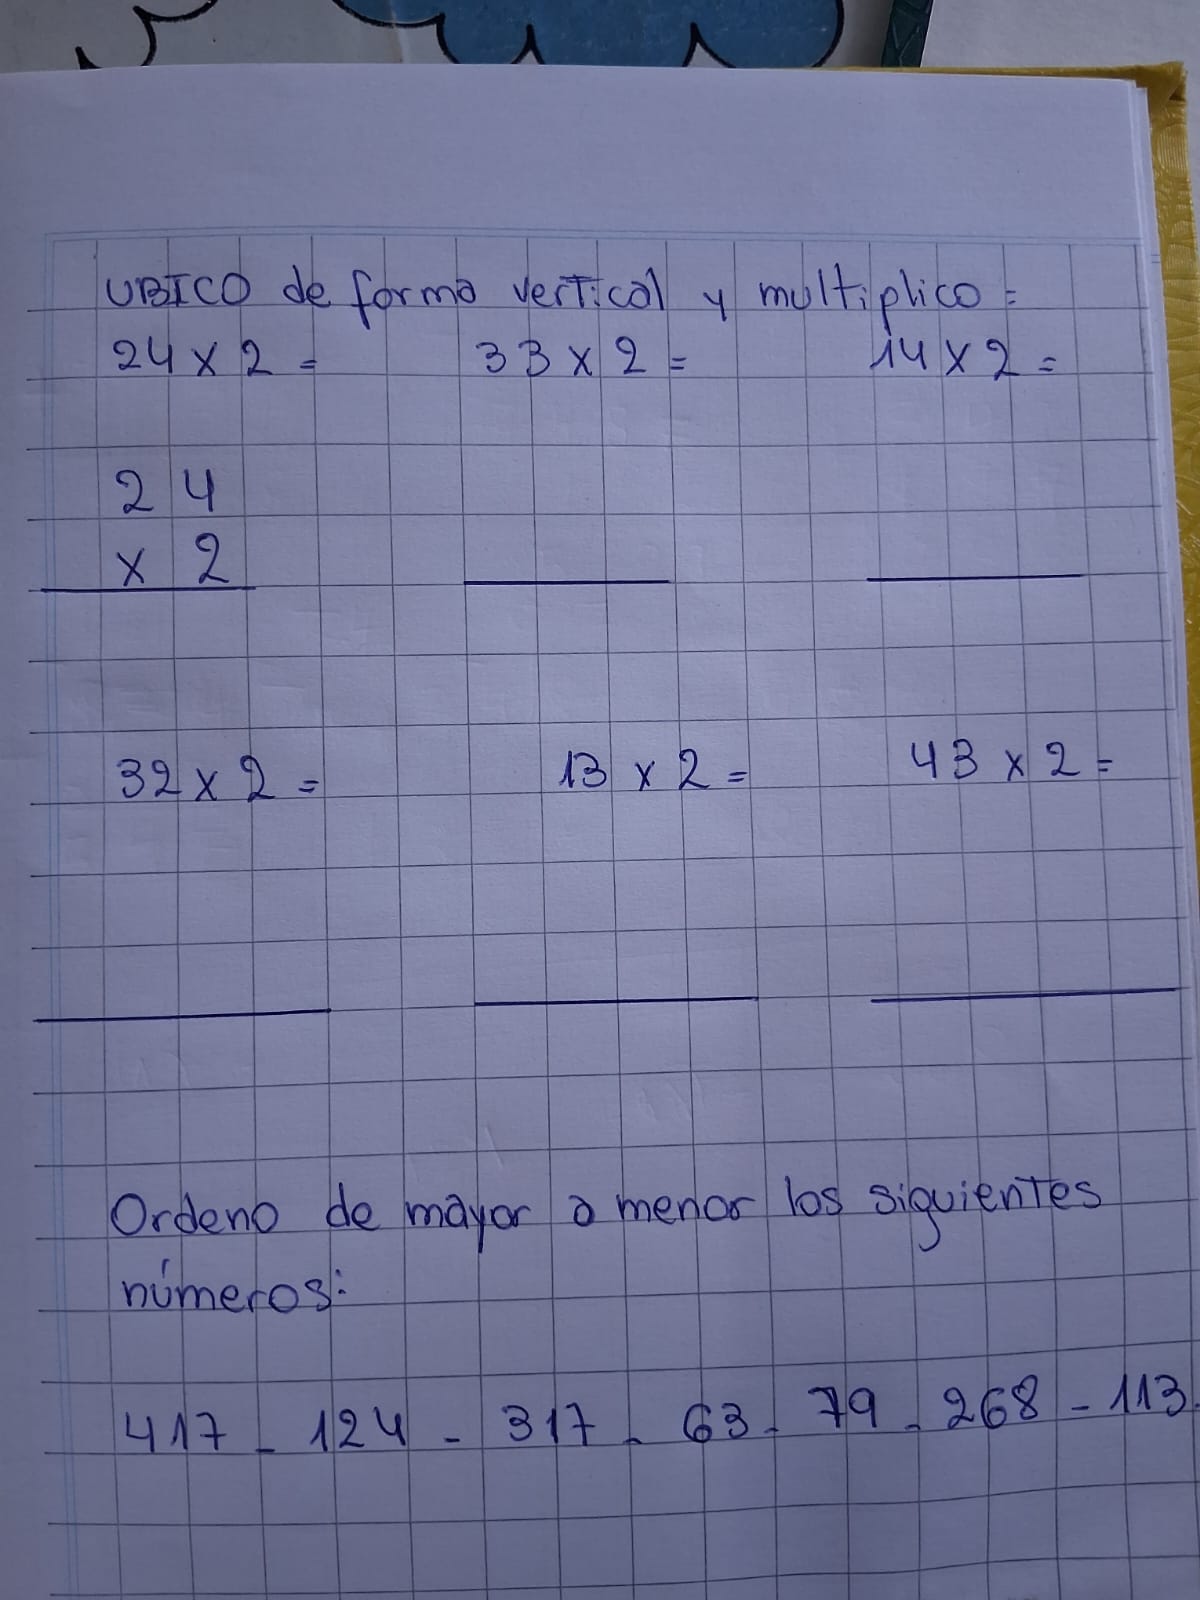 UBICO de forma vertical y multiplico=
24 x 2 = 33 x 2 = 14 x 2 =
24
x 2
32 x 2 = 13 x 2 = 43 x 2 =
Ordeno de mayor a menor los siguientes
números:
417 - 124 - 317 - 63 - 79 - 268 - 113.